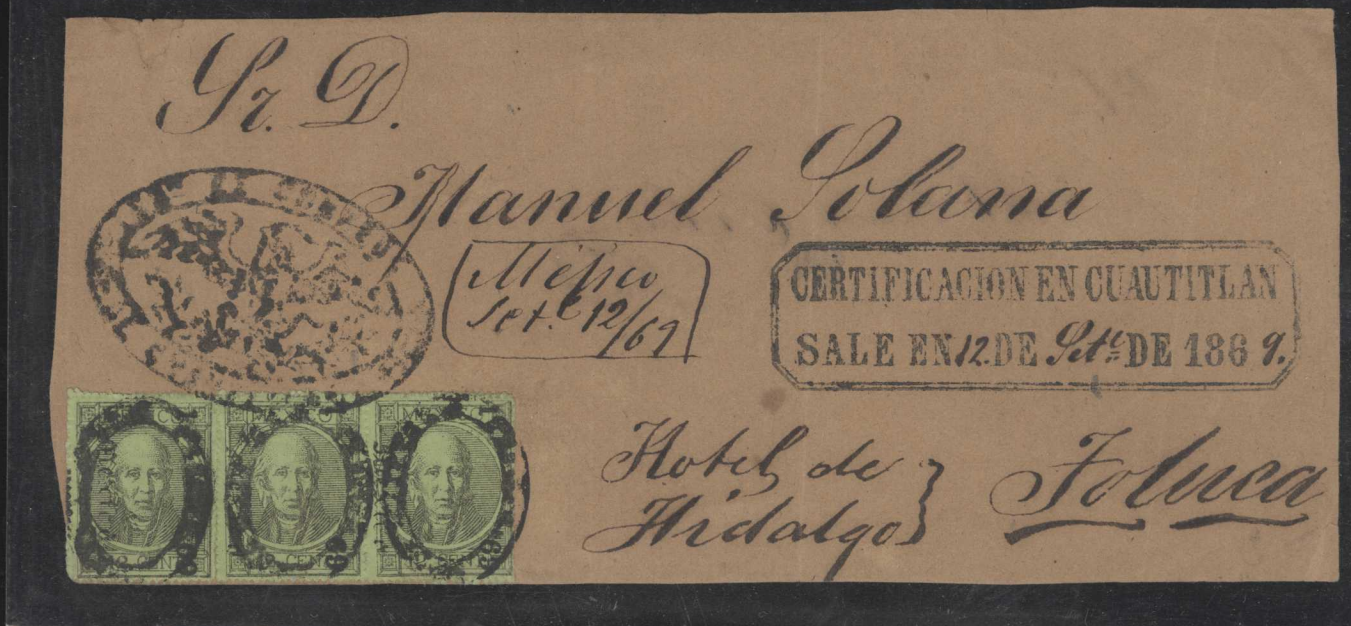 Sr. D.
Manuel Solana
Méjico
Set.e 12/69
CERTIFICACION EN CUAUTITLAN
SALE EN 12. DE Set.e DE 186 9.
Hotel de
Hidalgo
Toluca
MEXICO
12 CENT